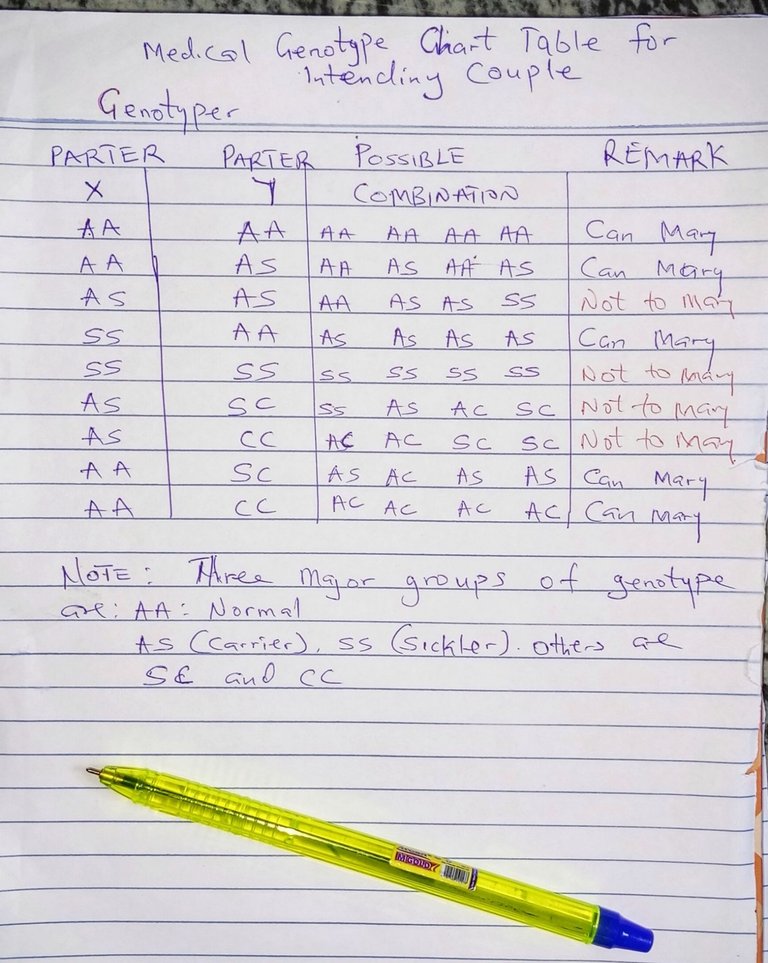 Medical Genotype Chart Table for
Intending Couple
Genotyper
PARTER PARTER POSSIBLE REMARK
X Y COMBINATION
AA AA AA AA AA AA Can Mary
AA AS AA AS AA AS Can Mary
AS AS AA AS AS SS Not to Mary
SS AA AS AS AS AS Can Mary
SS SS SS SS SS SS Not to Mary
AS SC SS AS AC SC Not to Mary
AS CC AC AC SC SC Not to Mary
AA SC AS AC AS AS Can Mary
AA CC AC AC AC AC Can Mary
NOTE: Three major groups of genotype
are: AA: Normal
AS (Carrier), SS (Sickler). others are
SC and CC